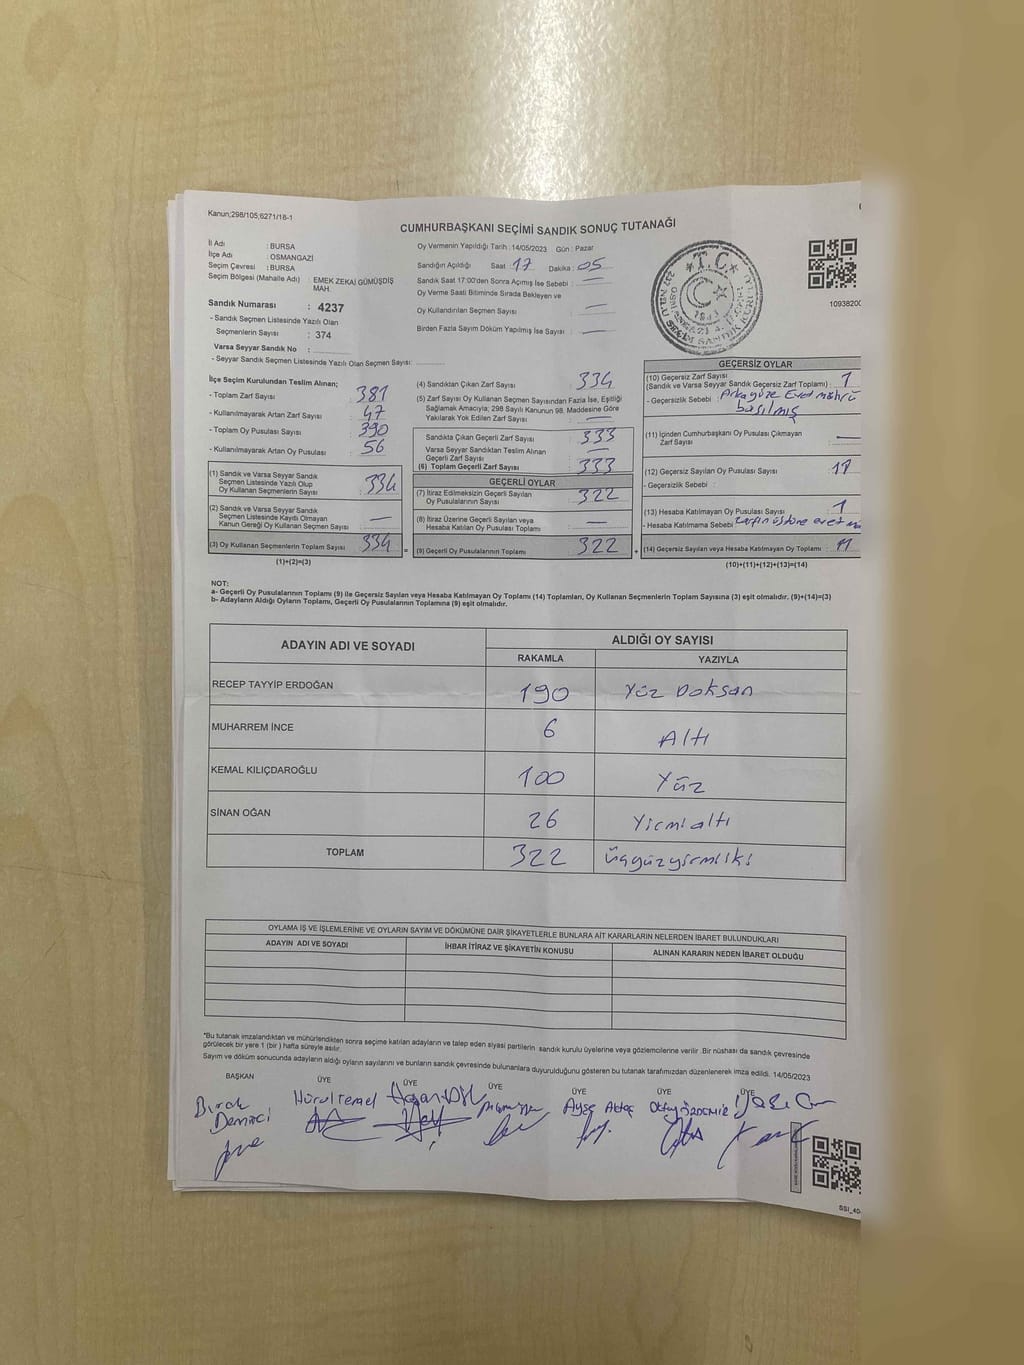 Kanun;298/105;6271/18-1
CUMHURBAŞKANI SEÇİMİ SANDIK SONUÇ TUTANAĞI
İl Adı : BURSA
İlçe Adı : OSMANGAZİ
Seçim Çevresi : BURSA
Seçim Bölgesi (Mahalle Adı) : EMEK ZEKAİ GÜMÜŞDİŞ
MAH.
Sandık Numarası : 4237
- Sandık Seçmen Listesinde Yazılı Olan
Seçmenlerin Sayısı : 374
Varsa Seyyar Sandık No :
- Seyyar Sandık Seçmen Listesinde Yazılı Olan Seçmen Sayısı:
Oy Vermenin Yapıldığı Tarih : 14/05/2023 Gün : Pazar
Sandığın Açıldığı Saat 17 Dakika : 05
Sandık Saat 17:00'den Sonra Açımış İse Sebebi : —
Oy Verme Saati Bitiminde Sırada Bekleyen ve
Oy Kullandırılan Seçmen Sayısı : —
Birden Fazla Sayım Döküm Yapılmış İse Sayısı : —
T.C.
10938200
İlçe Seçim Kurulundan Teslim Alınan;
- Toplam Zarf Sayısı : 381
- Kullanılmayarak Artan Zarf Sayısı : 47
- Toplam Oy Pusulası Sayısı : 390
- Kullanılmayarak Artan Oy Pusulası : 56
(1) Sandık ve Varsa Seyyar Sandık
Seçmen Listesinde Yazılı Olup
Oy Kullanan Seçmenlerin Sayısı : 334
(2) Sandık ve Varsa Seyyar Sandık
Seçmen Listesinde Kayıtlı Olmayan
Kanun Gereği Oy Kullanan Seçmen Sayısı : —
(3) Oy Kullanan Seçmenlerin Toplam Sayısı : 334 =
(1)+(2)=(3)
(4) Sandıktan Çıkan Zarf Sayısı : 334
(5) Zarf Sayısı Oy Kullanan Seçmen Sayısından Fazla İse, Eşitliği
Sağlamak Amacıyla; 298 Sayılı Kanunun 98. Maddesine Göre
Yakılarak Yok Edilen Zarf Sayısı : —
Sandıkta Çıkan Geçerli Zarf Sayısı : 333
Varsa Seyyar Sandıktan Teslim Alınan
Geçerli Zarf Sayısı : —
(6) Toplam Geçerli Zarf Sayısı : 333
GEÇERLİ OYLAR
(7) İtiraz Edilmeksizin Geçerli Sayılan
Oy Pusulalarının Sayısı : 322
(8) İtiraz Üzerine Geçerli Sayılan veya
Hesaba Katılan Oy Pusulası Toplamı : —
(9) Geçerli Oy Pusulalarının Toplamı : 322 +
GEÇERSİZ OYLAR
(10) Geçersiz Zarf Sayısı
(Sandık ve Varsa Seyyar Sandık Geçersiz Zarf Toplamı) : 1
- Geçersizlik Sebebi : Arka yüze Evet mührü
basılmış
(11) İçinden Cumhurbaşkanı Oy Pusulası Çıkmayan
Zarf Sayısı : —
(12) Geçersiz Sayılan Oy Pusulası Sayısı :
- Geçersizlik Sebebi :
(13) Hesaba Katılmayan Oy Pusulası Sayısı : 1
- Hesaba Katılmama Sebebi : zarfın üstüne evet
(14) Geçersiz Sayılan veya Hesaba Katılmayan Oy Toplamı :
(10)+(11)+(12)+(13)=(14)
NOT:
a- Geçerli Oy Pusulalarının Toplamı (9) ile Geçersiz Sayılan veya Hesaba Katılmayan Oy Toplamı (14) Toplamları, Oy Kullanan Seçmenlerin Toplam Sayısına (3) eşit olmalıdır. (9)+(14)=(3)
b- Adayların Aldığı Oyların Toplamı, Geçerli Oy Pusulalarının Toplamına (9) eşit olmalıdır.
ADAYIN ADI VE SOYADI ALDIĞI OY SAYISI
RAKAMLA YAZIYLA
RECEP TAYYİP ERDOĞAN 190 Yüz Doksan
MUHARREM İNCE 6 Altı
KEMAL KILIÇDAROĞLU 100 Yüz
SİNAN OĞAN 26 Yirmialtı
TOPLAM 322 Üçyüzyirmiiki
OYLAMA İŞ VE İŞLEMLERİNE VE OYLARIN SAYIM VE DÖKÜMÜNE DAİR ŞİKAYETLERLE BUNLARA AİT KARARLARIN NELERDEN İBARET BULUNDUKLARI
ADAYIN ADI VE SOYADI İHBAR İTİRAZ VE ŞİKAYETİN KONUSU ALINAN KARARIN NEDEN İBARET OLDUĞU
*Bu tutanak imzalandıktan ve mühürlendikten sonra seçime katılan adayların ve talep eden siyasi partilerin sandık kurulu üyelerine veya gözlemcilerine verilir .Bir nüshası da sandık çevresinde
görülecek bir yere 1 (bir ) hafta süreyle asılır.
Sayım ve döküm sonucunda adayların aldığı oyların sayılarını ve bunların sandık çevresinde bulunanlara duyurulduğunu gösteren bu tutanak tarafımızdan düzenlenerek imza edildi. 14/05/2023
BAŞKAN ÜYE ÜYE ÜYE ÜYE ÜYE ÜYE
Burak Demirci
Ayşe Aktaş